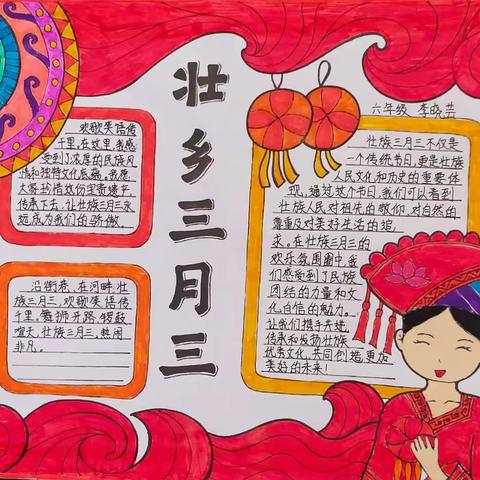 壮乡三月三
六年级 李晓芸
欢歌笑语传
千里,在这里,我感
受到了浓厚的民族风
情和独特文化底蕴。我愿
大家珍惜这份宝贵遗产,
传承下去,让壮族三月三永
远成为我们的骄傲。
沿街巷,在河畔,壮
族三月三,欢歌笑语传
千里,舞狮开路,锣鼓
喧天,壮族三月三,热闹
非凡。
壮族三月三不仅是
一个传统节日,更是壮族
人民文化和历史的重要体
现,通过这个节日,我们可以看到
壮族人民对祖先的敬仰,对自然的
尊重及对美好生活的追
求。在壮族三月三的
欢乐氛围中,我
们感受到了民族
团结的力量和文
化自信的魅力。
让我们携手并进,
传承和发扬壮族
优秀文化,共同创造更加
美好的未来!